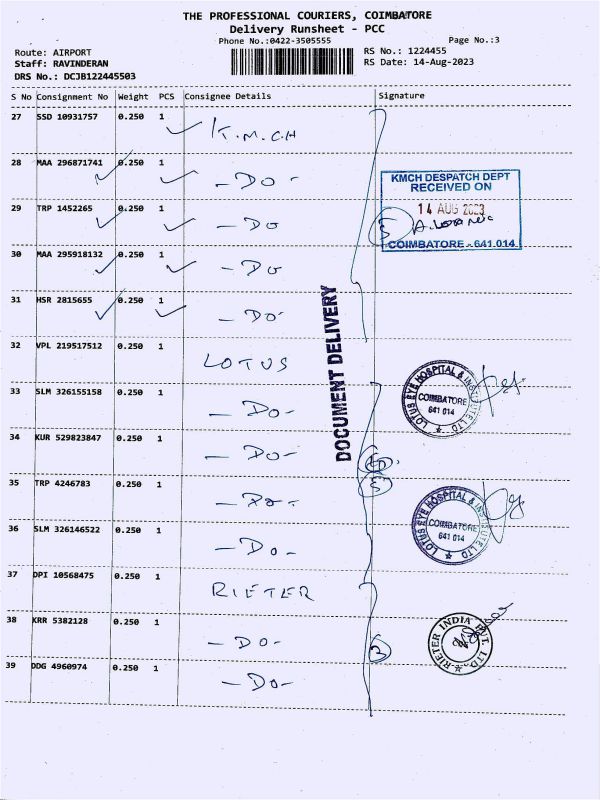 THE PROFESSIONAL COURIERS, COIMBATORE
Delivery Runsheet - PCC
Phone No.:0422-3505555
Page No.:3
Route: AIRPORT
RS No.: 1224455
Staff: RAVINDERAN
RS Date: 14-Aug-2023
DRS No.: DCJB122445503
S No Consignment No Weight PCS Consignee Details Signature
27 SSD 10931757 0.250 1
K.M.C.H
28 MAA 296871741 0.250 1
- DO -
29 TRP 1452265 0.250 1
- DO
30 MAA 295918132 0.250 1
- DO
31 HSR 2815655 0.250 1
- DO-
KMCH DESPATCH DEPT
RECEIVED ON
14 AUG 2023
5
COIMBATORE - 641 014
DOCUMENT DELIVERY
32 VPL 219517512 0.250 1
LOTUS
33 SLM 326155158 0.250 1
- DO-
34 KUR 529823847 0.250 1
- DO-
35 TRP 4246783 0.250 1
- DO-
36 SLM 326146522 0.250 1
- DO-
5
LOTUS EYE HOSPITAL & INSTITUTE LTD
COIMBATORE
641 014
LOTUS EYE HOSPITAL & INSTITUTE LTD
COIMBATORE
641 014
37 DPI 10568475 0.250 1
RIETER
38 KRR 5382128 0.250 1
- DO-
39 DDG 4960974 0.250 1
- DO-
3
RIETER INDIA PVT. LTD.